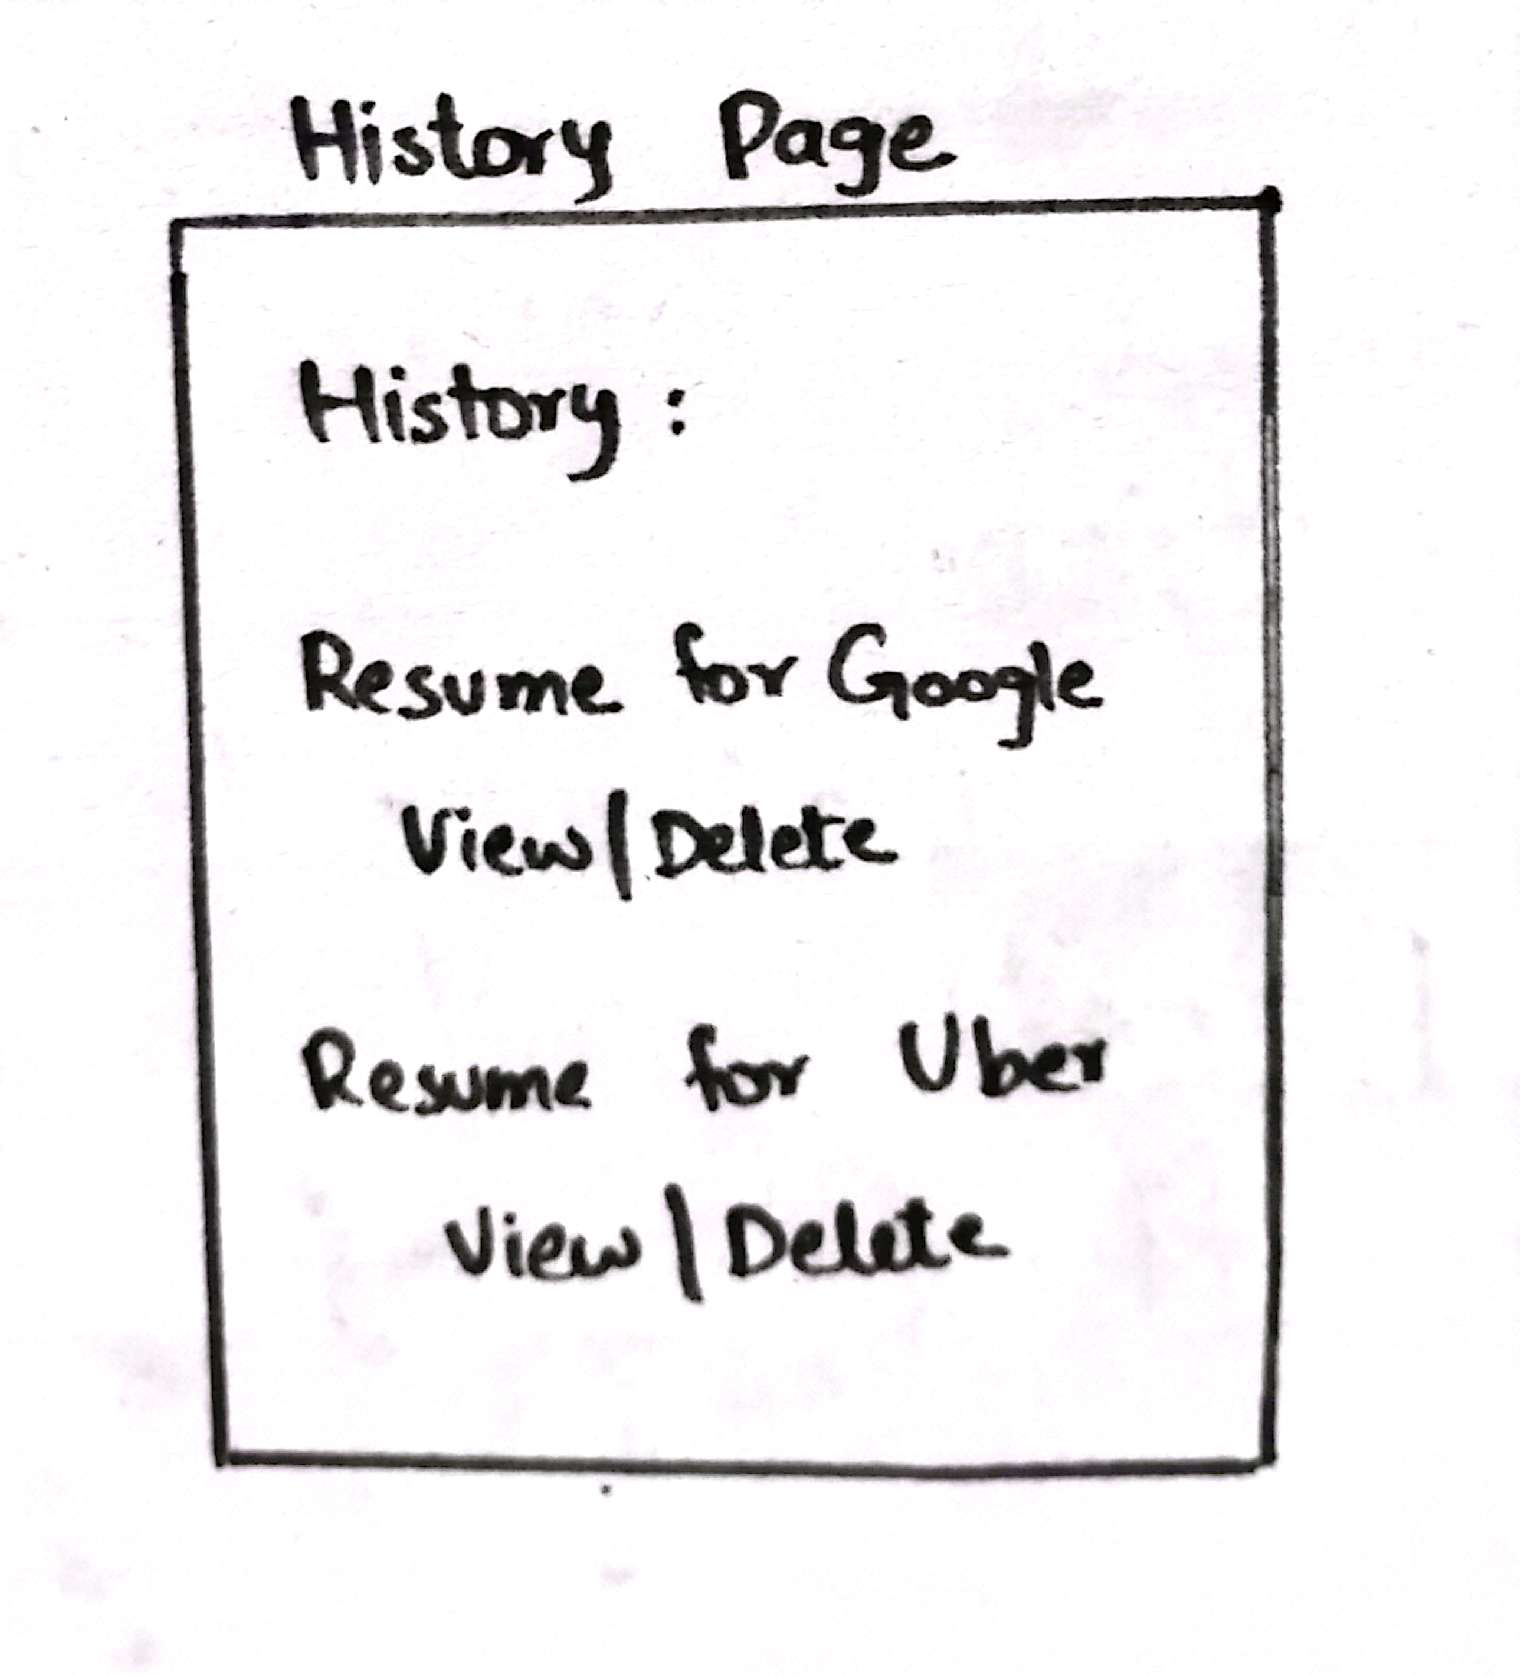 History Page
History :
Resume for Google
View/Delete
Resume for Uber
View | Delete